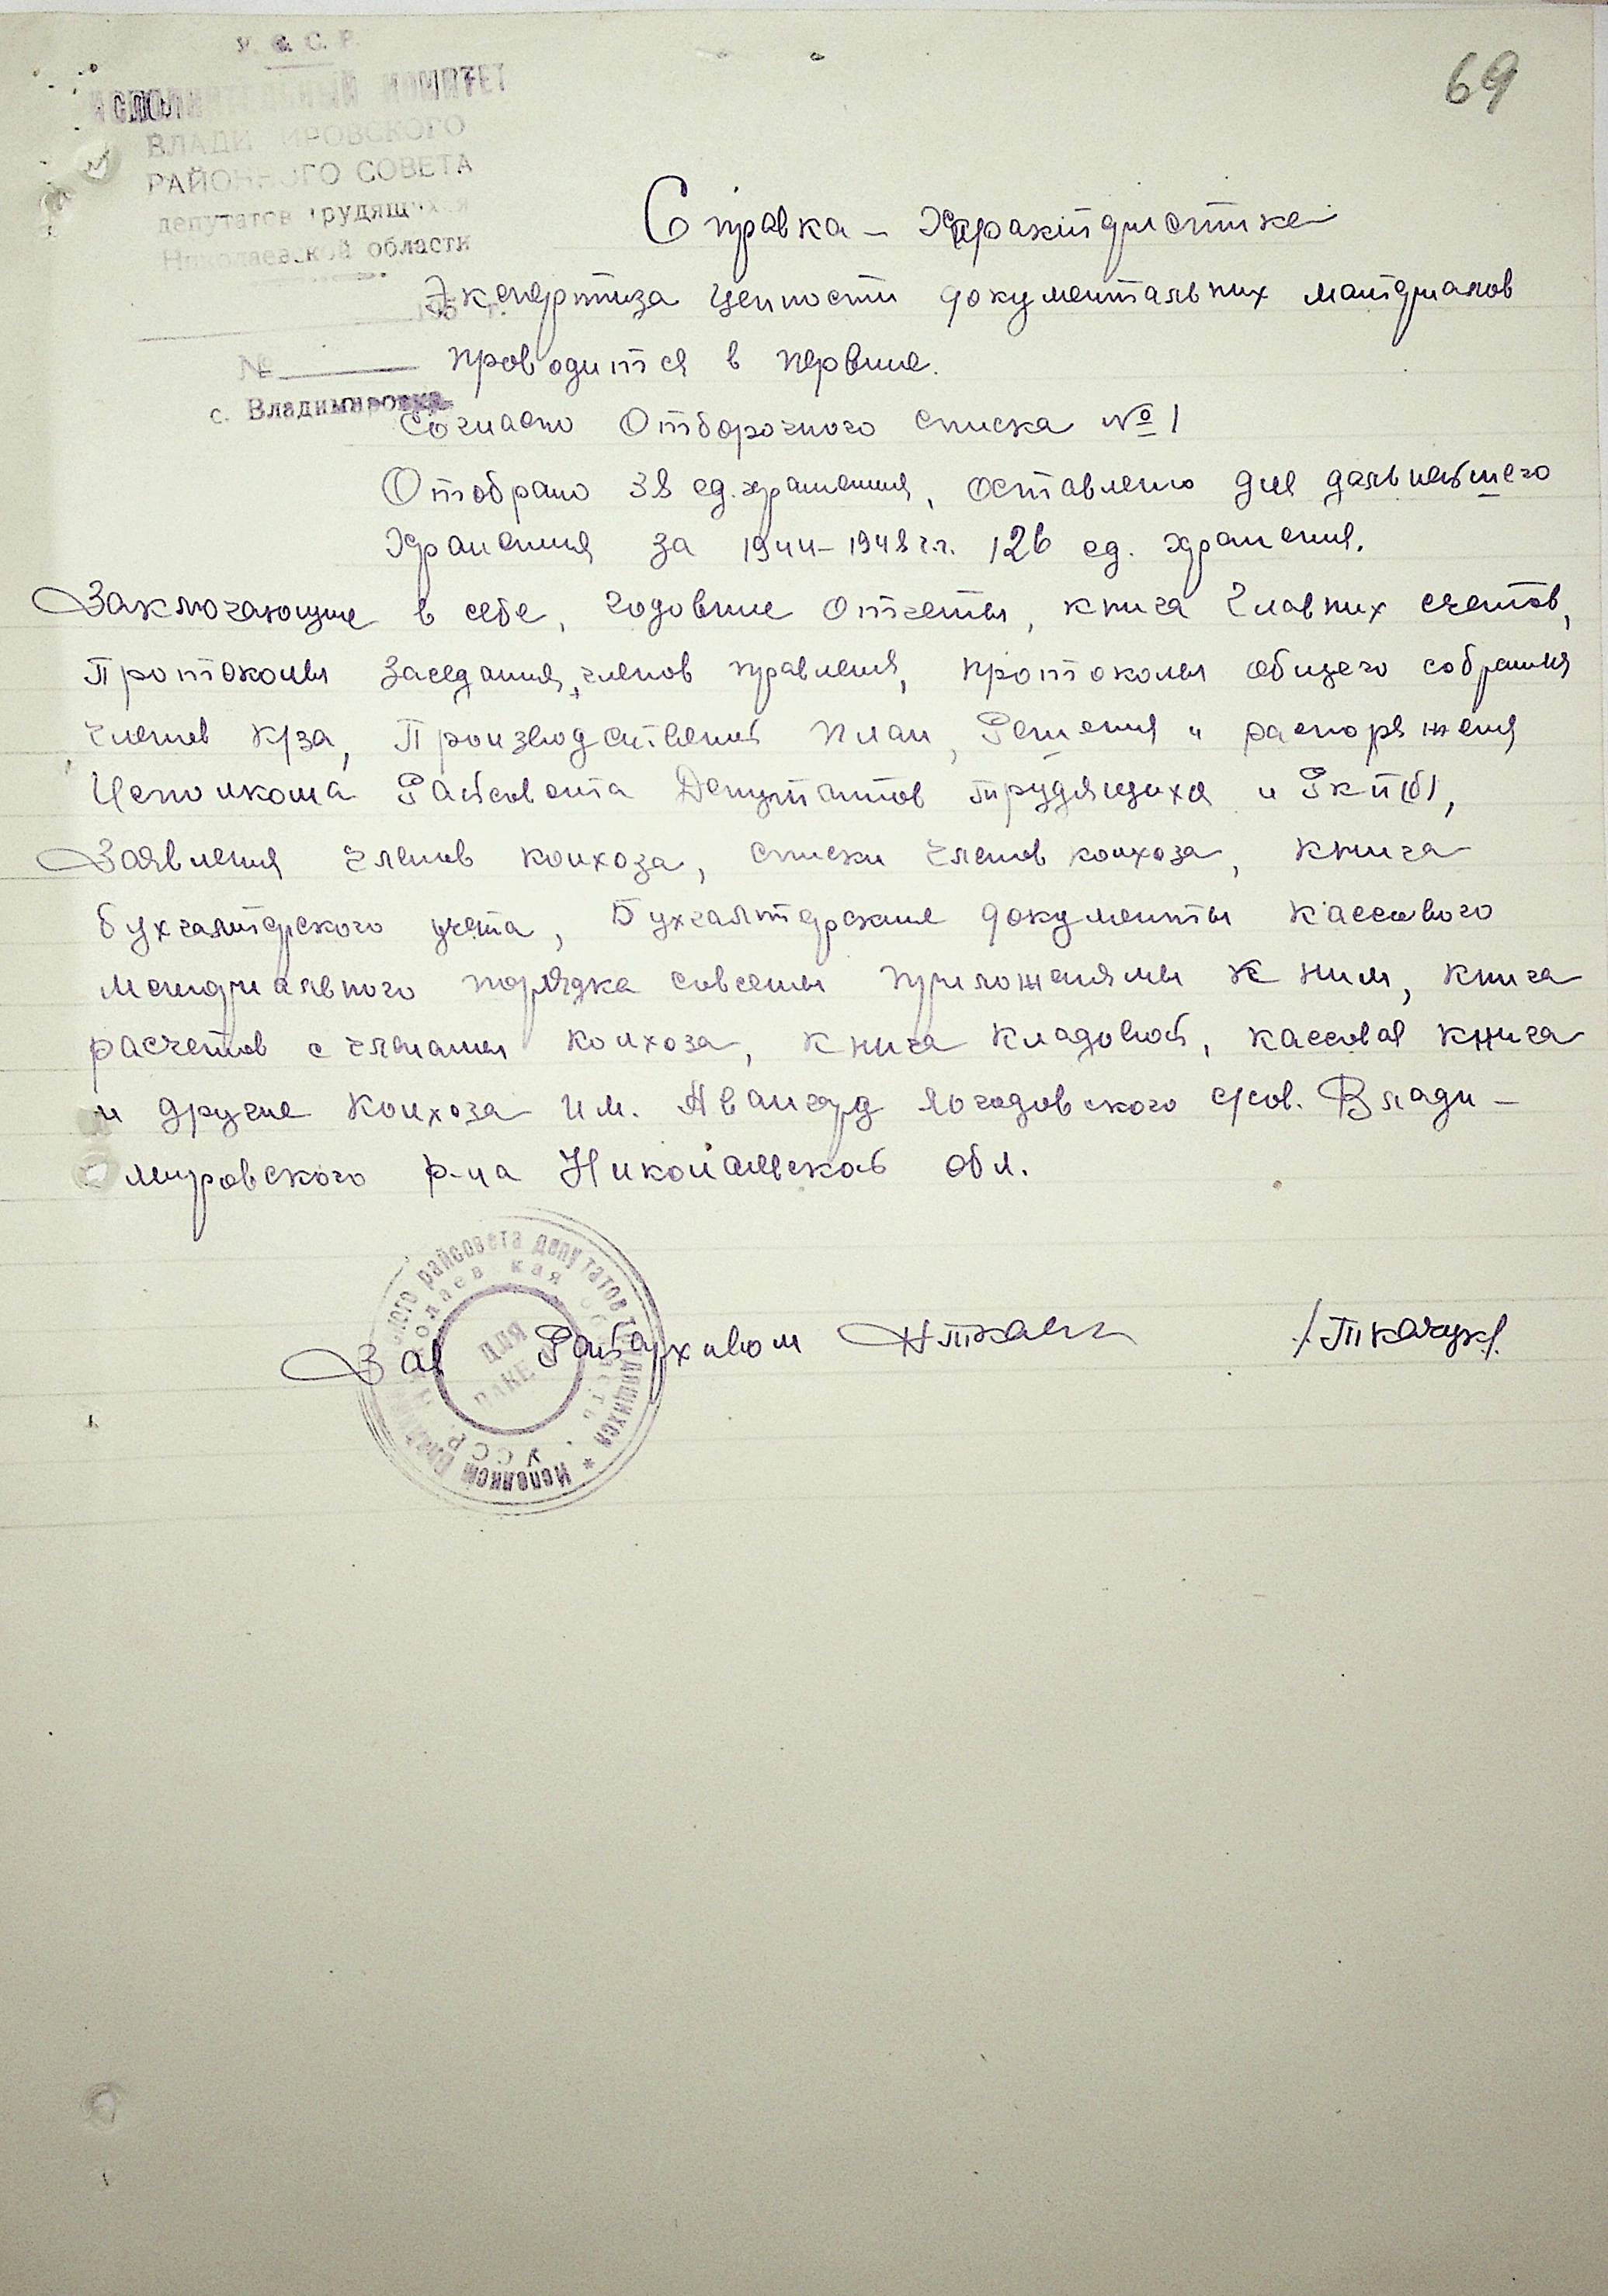 У. С. С. Р.
69
ИСПОЛНИТЕЛЬНЫЙ КОМИТЕТ
ВЛАДИМИРОВСКОГО
РАЙОННОГО СОВЕТА
депутатов трудящихся
Николаевской области
195 г.
№
с. Владимировка
Справка – Характеристика
Экспертиза ценности документальных материалов
проводится в первые.
Согласно Отборочного списка № 1
Отобрано 38 ед. хранения, оставлено для дальнейшего
Хранения за 1944–1948 г.г. 126 ед. хранения.
Заключающие в себе, годовые отчеты, книга Главных счетов,
Протоколы заседания, членов правления, протоколы общего собрания
членов к/за, Производственный план, Решения и распоряжения
Исполкома Райсовета Депутатов трудящихся и РКП(б),
Заявления членов колхоза, списки членов колхоза, книга
бухгалтерского учета, Бухгалтерские документы кассового
материального порядка совсеми приложениями к ним, книга
расчетов с членами колхоза, книга кладовой, кассовая книга
и другие колхоза им. Авангард с/сов. Влади-
мировского р-на Николаевской обл.
Зав Райархивом /Ткачук/.
Исполком районного райсовета депутатов трудящихся *
Николаевская область УССР
ДЛЯ
ПАКЕТОВ